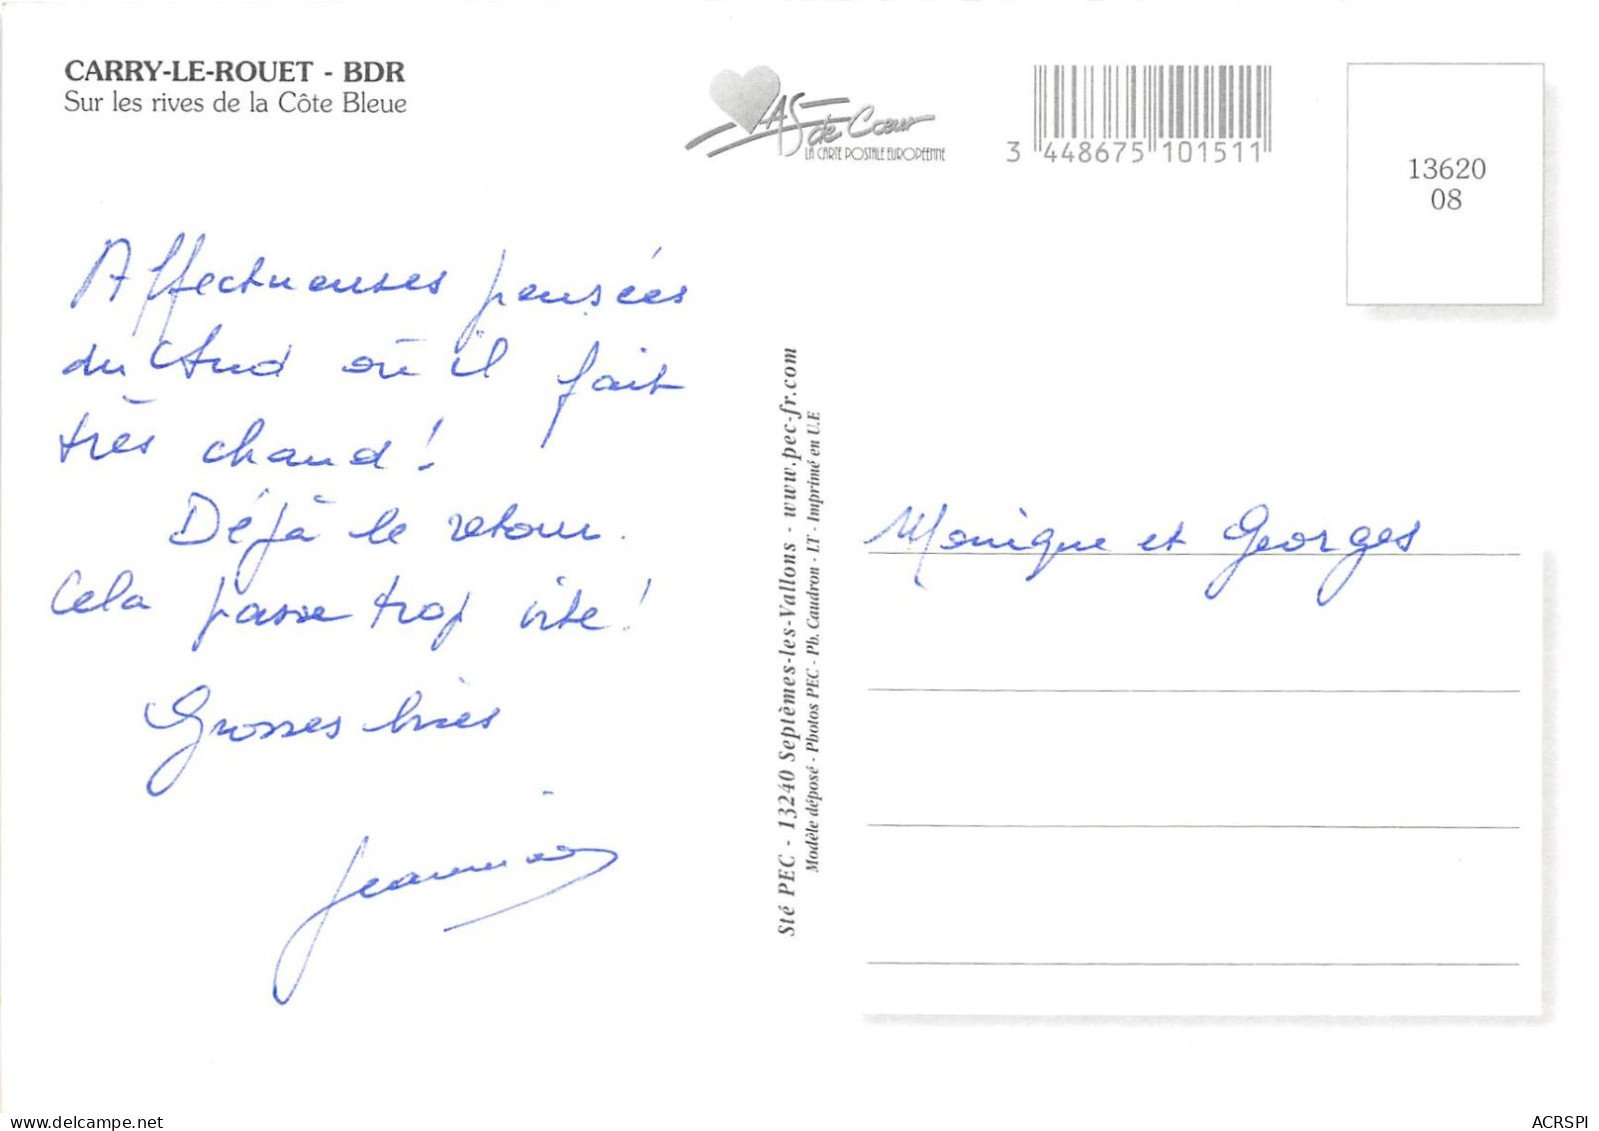 CARRY-LE-ROUET - BDR
Sur les rives de la Côte Bleue
AS de Cœur
LA CARTE POSTALE EUROPÉENNE
3 448675 101511
13620
08
Affectueuses pensées
du Sud où il fait
très chaud !
Déjà le retour.
Cela passe trop vite !
Grosses bises
Sté PEC - 13240 Septèmes-les-Vallons - www.pec-fr.com
Modèle déposé - Photos PEC - Ph. Caudron - LT - Imprimé en U.E
Monique et Georges
delcampe.net
ACRSPI